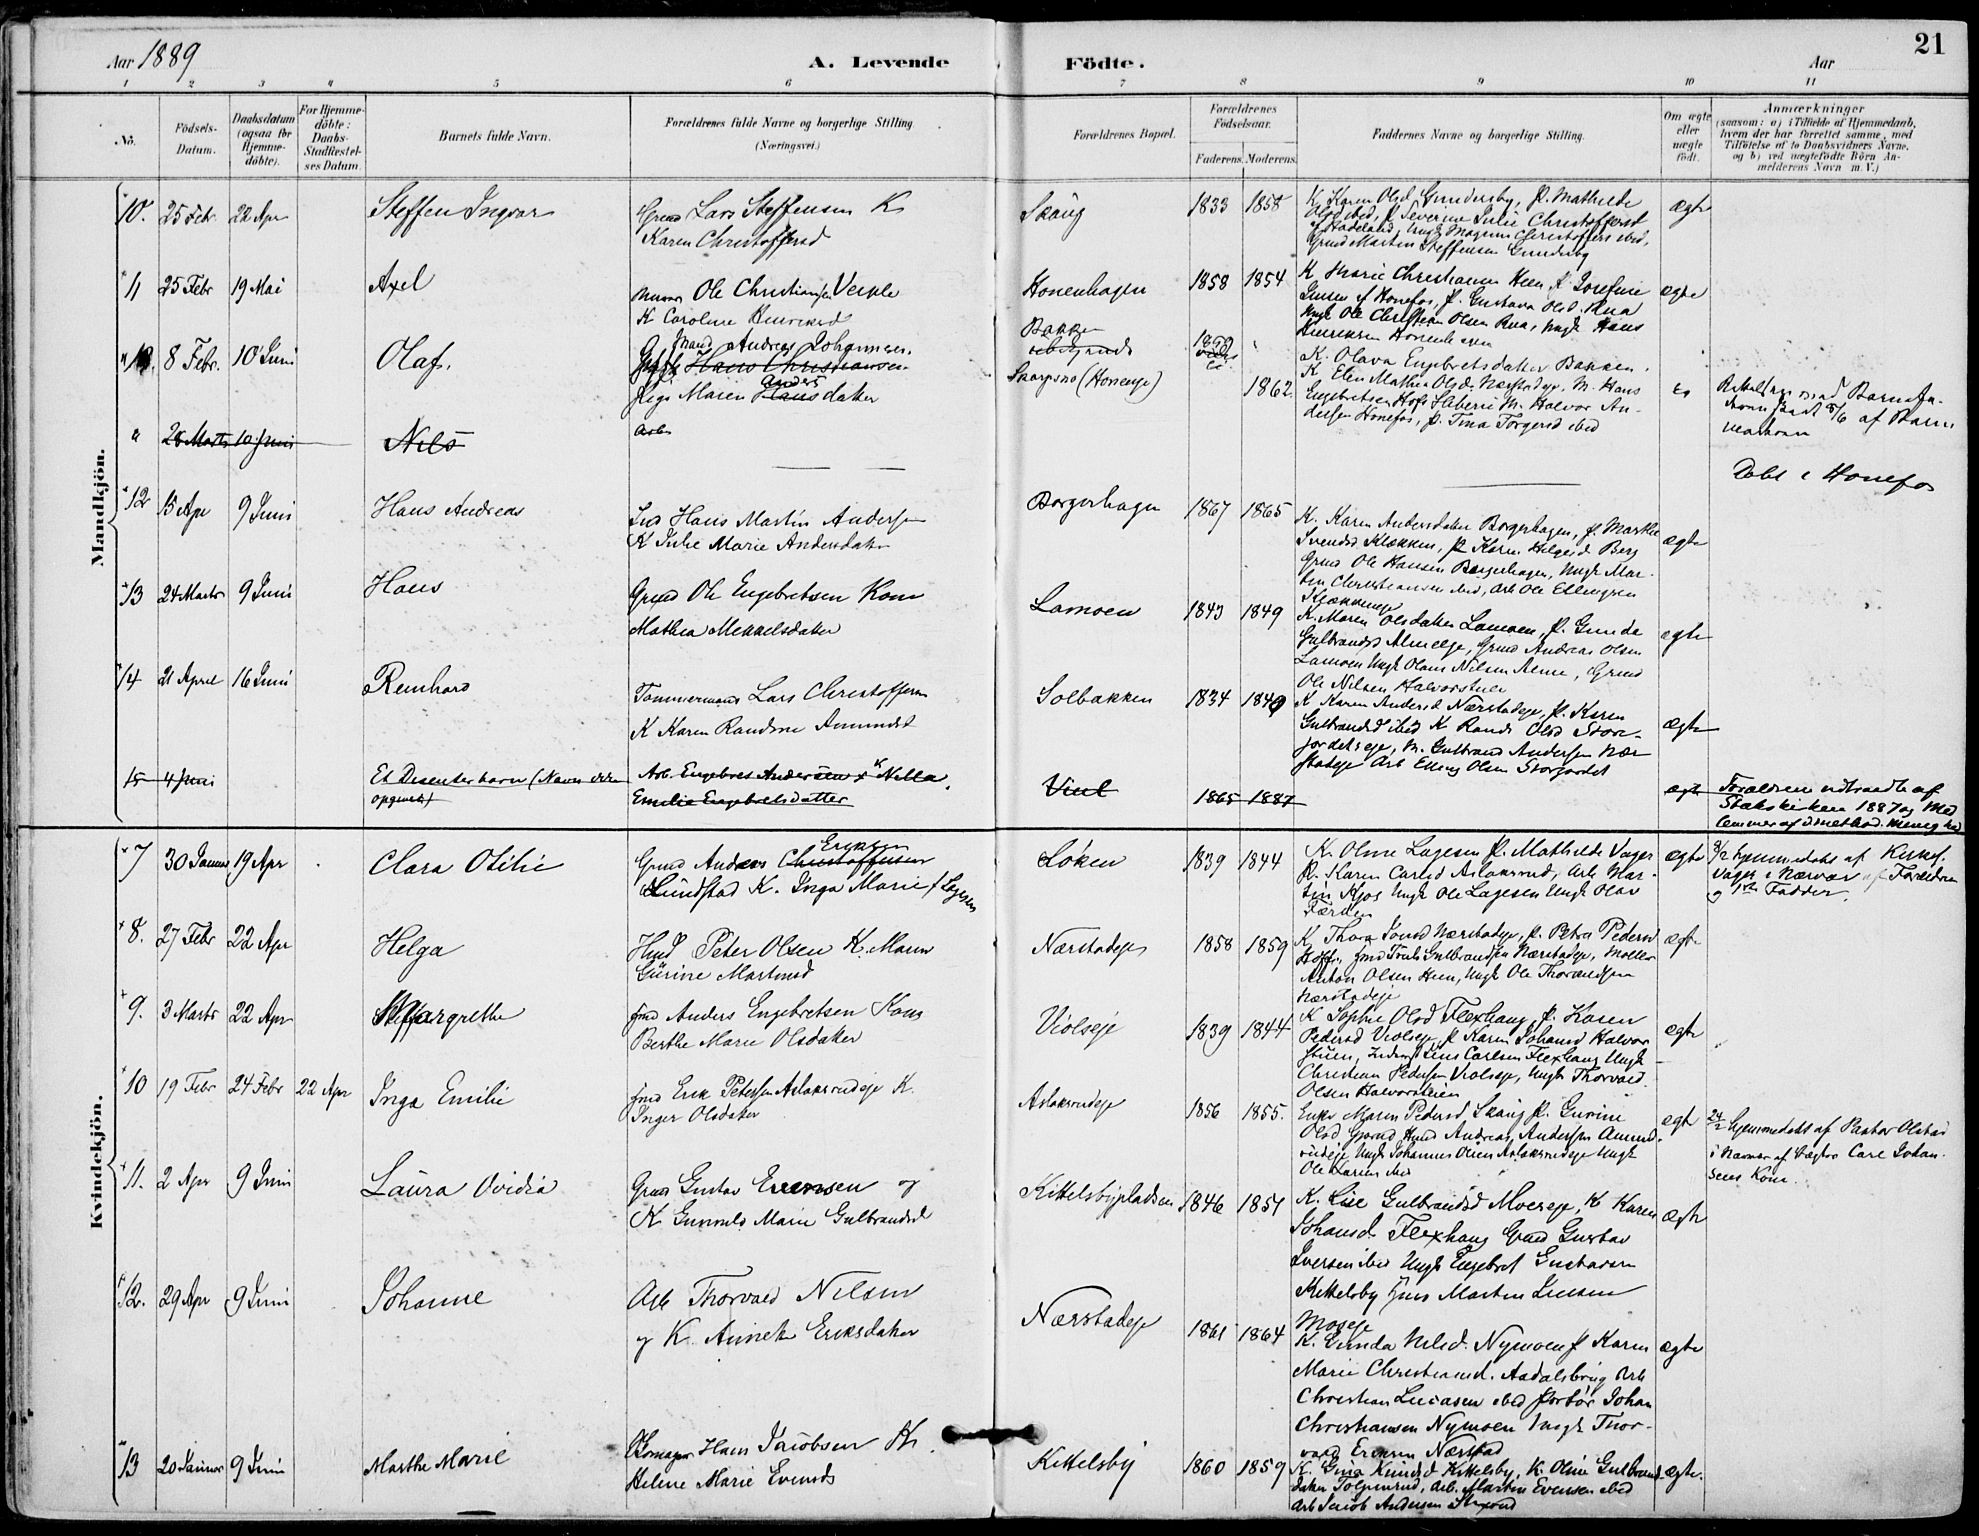 Aar 1889
A. Levende
Födte.
Aar
21
1 2 3 4 5 6 7 8 9 10 11
No.
Födsels-
Datum.
Daabsdatum
(ogsaa for
Hjemme-
döbte).
For Hjemme-
döbte:
Daabs-
Stadfæstel-
ses Datum.
Barnets fulde Navn.
Forældrenes fulde Navne og borgerlige Stilling
(Næringsvei.)
Forældrenes Bopæl.
Forældrenes
Födselsaar.
Faderens. Moderens.
Faddernes Navne og borgerlige Stilling.
Om ægte
eller
uægte
födt.
Anmærkninger
(saasom: a) i Tilfælde af Hjemmedaab,
hvem der har forrettet samme, med
Tilföielse af to Daabsvidners Navne.
og b) ved uægtefödte Börn An-
melderens Navn m. V.)
Mandkjön.
10. 25 Febr 22 Apr Steffen Ingvar
Grmd Lars Steffensen K
Karen Christoffersd
Skaug 1833 1858
K. Karen Olsd Gundersby, P. Mathilde
Olsd ibid, P. Severine Julie Christoffersd
Hadeland, Ungk Magnus Christoffers ibid,
Grmd Martin Steffensen Gundersby
ægte
11 25 Febr 19 Mai Axel
Murer Ole Christiansen Verkle
K Caroline Henriksd
Honenhagen 1858 1854
K Marie Christiansen Heen P. Josefine
Jensen af Honefos, P. Gustava Olsd. Rua
Ungk Ole Christian Olsen Rua, Ungk Hans
Henriksen Honenhagen
ægte
8 Febr. 10 Juni Olaf.
Andreas Johannesen
Hans Christiansen
Pige Maren Anders Hansdatter
Arb
Bakken
Skarpsno (Honenge)
1859
1862
K. Olava Engebretsdatter Bakken.
K Elen Mathea Olsd. Nærstadeje, M. Hans
Engebretsen Hofs Slaberi M. Halvor An-
dersen Honefos, P. Tina Torgersd ibid
af Barne
28 Marts 10 Juni Nils
Døbt i Honefos
12 15 Apr 9 Juni Hans Andreas
Ind Hans Martin Andersen
K Julie Marie Andersdatter
Borgerhagen 1867 1865
K. Karen Andersdatter Borgerhagen, P. Marthe
Svendsd Klækken, P Karen Helgesd Berg
Grmd Ole Hansen Borgerhagen, Ungk Mar-
tin Christiansen ibid, Arb Ole Ellingsen
Klækkeneje
ægte
13 24 Marts 9 Juni Hans
Grmd Ole Engebretsen Kone
Mathea Mekkelsdatter
Lamoen 1843 1849
K. Maren Olsdatter Lamoen, P. Gunda
Gulbrandsd Almeeje, Grmd Andreas Olsen
Lamoen Ungk Olaus Nilsen Alme, Grmd
Ole Nilsen Halvorstuen
ægte
14 21 April 16 Juni Reinhard
Tømmermand Lars Christoffersen
K Karen Randine Amundsd
Solbakken 1834 1849
K Karen Andersd Nærstadeje, P. Karen
Gulbrandsd ibid K Randi Olsd Stor-
jordetseje, M. Gulbrand Andersen Nær-
stadeje Arb Elling Olsen Storjordet
ægte
15 4 Juni Et Dissenterbarn (Navn ikke
opgivet)
Arb. Engebret Andersen & Nilla
Emilie Engebretsdatter
Viul 1865 1887
ægte
Forældrene udtraadte af
Statskirken 1887 og Med-
lemmer af Method. Menighed
Kvindekjön.
7 30 Januar 19 Apr Clara Otilie
Grmd Anders Christoffersen Eriksen
Lundstad K. Inga Marie Lagesen
Løken 1839 1844
K. Oline Lagesen P. Mathilde Vager
P. Karen Carlsd Aslaksrud, Arb Mar-
tin Hjos Ungk Ole Lagesen Ungk Olav
Færden
ægte
hjemmedøbt af Kirkes.
Vager i Nærvær af Forældrene
og 1ste Fadder.
8. 27 Febr 22 Apr Helga
Hmd Peter Olsen K. Maren
Gurine Martinsd
Nærstadeje 1858 1859
K, Thora Jonsd Nærstadeje, P. Petra Pedersd
Hoff, Truls Gulbrandsen Nærstadeje, Møller
Anton Olsen Heen, Ungk Ole Thorvaldsen
Nærstadeje
ægte
9. 3 Marts 22 Apr Margrethe
Anders Engebretsen Kone
Berthe Marie Olsdatter
Violseje 1839 1844
K Sophie Olsd Flexhaug, P. Karen
Pedersd Violseje P Karen Johansd Halvor-
stuen, Lins Carlsen Flexhaug Ungk
Christian Pedersen Violseje, Ungk Thorvald
Olsen Halvorstuen
ægte
10 19 Febr 24 Febr 22 Apr Inga Emilie
Erik Petersen Aslaksrudeje K.
Inger Olsdatter
Aslaksrudeje 1856 1855.
Enke Maren Pedersd Skaug P. Gurine
Olsd Hmd Andreas Andersen Amund-
rudeje Ungk Johannes Olsen Aslaksrudeje Ungk
Ole Larsen ibid
ægte
24/2 hjemmedøbt af Pastor Olstad
i Nærvær af Carl Johan-
sens Kone.
11. 2 Apr 9 Juni Laura Ovidia
Grmd Gustav Iversen og
K Gunnild Marie Gulbrandsd
Kittelsbypladsen 1846 1851
K. Lise Gulbrandsd Moeseje, K Karen
Johansd Flexhaug Grmd Gustav
Iversen ibid Ungk Engebret Gustavsen
Kittelsby Martin Jensen
Moseje
ægte
12. 29 Apr 9 Juni Johanne
Arb Thorvald Nilsen
og K. Annette Eriksdatter
Nærstadeje 1861 1864
K. Gunda Nilsd. Nymoen P Karen
Marie Christiansd. Aadalsbrug Arb
Christian Lucasen ibid Johan
Christiansen Nymoen Ungk Thor-
vald Eriksen Nærstad
ægte
13 20 Januar 9 Juni Marthe Marie
Skomager Hans Jacobsen K.
Helene Marie Evensd
Kittelsby 1860 1859
K. Gina Knudsd Kittelsby, K. Oline Gulbrands-
datter Tolpinrud, Arb. Martin Evensen ibid
Arb Jacob Andersen
ægte.